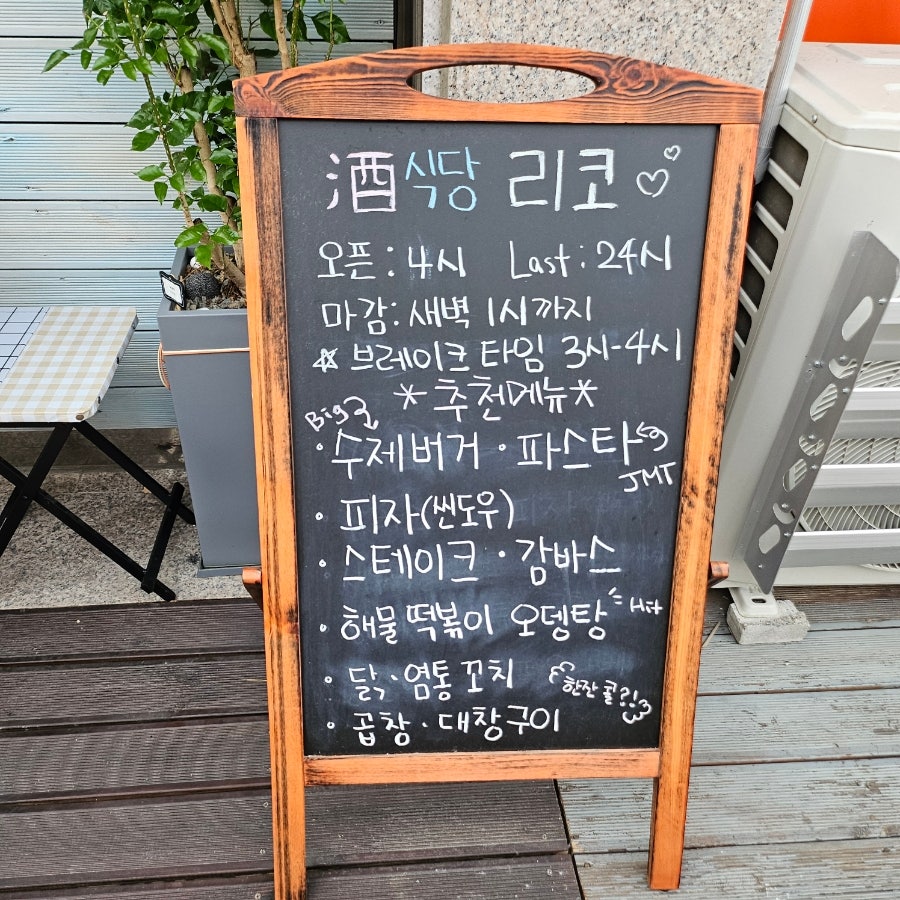 酒식당 리코
오픈 : 4시 Last : 24시
마감 : 새벽 1시까지
☆ 브레이크 타임 3시-4시
*추천메뉴*
Big
· 수제버거 · 파스타
JMT
· 피자(씬도우)
· 스테이크 · 감바스
· 해물 떡볶이 오뎅탕 Hit
· 닭 · 염통 꼬치
한잔 콜?!
· 곱창 · 대창구이